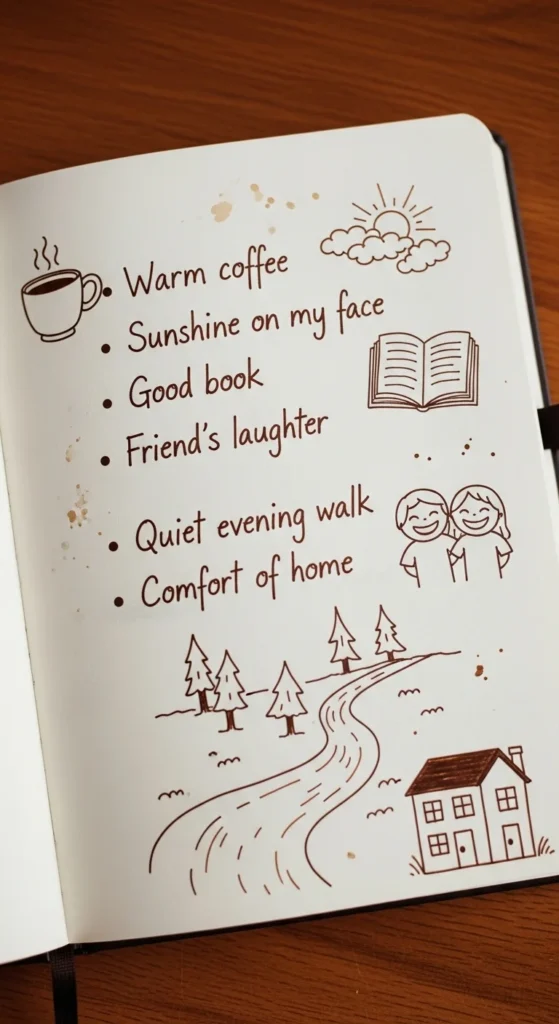 • Warm coffee
• Sunshine on my face
• Good book
• Friend's laughter
• Quiet evening walk
• Comfort of home